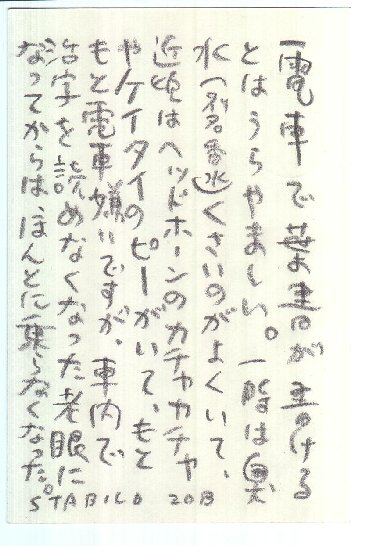 電車で葉書が書ける
とはうらやましい。一時は臭
水(別名香水)くさいのがよくいて、
近頃はヘッドホーンのカチャカチャ
やケイタイのピーがいて、もと
もと電車嫌いですが、車内で
活字を読めなくなった老眼に
なってからは、ほんとに乗らなくなった。
STABILO